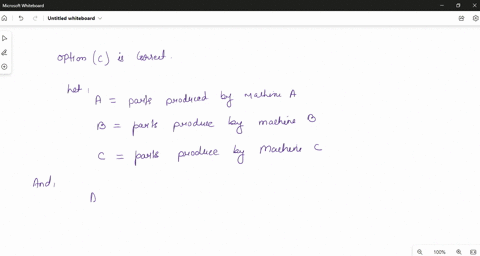 Microsoft Whiteboard
Untitled whiteboard
option (c) is correct.
Let,
A = parts produced by machine A
B = parts produce by machine B
C = parts produce by machine C
And,
D
100%